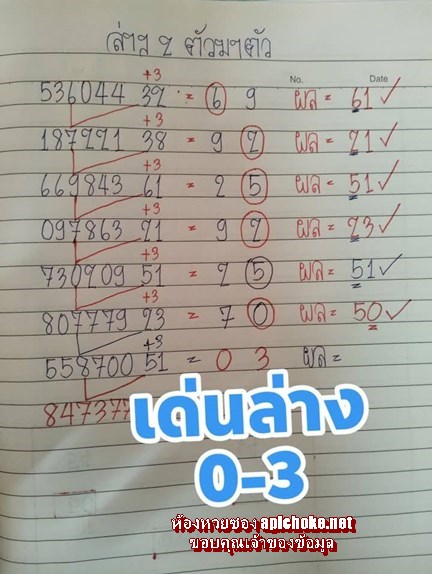 ล่าง 2 ตัวมาตัว
No. Date
+3
536044 32 = 6 9 ผล = 61 ✓
+3
187221 38 = 9 2 ผล = 21 ✓
+3
669843 61 = 2 5 ผล = 51 ✓
+3
097863 21 = 9 2 ผล = 23 ✓
+3
730209 51 = 2 5 ผล = 51 ✓
+3
807779 23 = 7 0 ผล = 50 ✓
+3
558700 51 = 0 3 ผล =
84737
เด่นล่าง
0-3
ห้องหวยของ apichoke.net
ขอบคุณเจ้าของข้อมูล